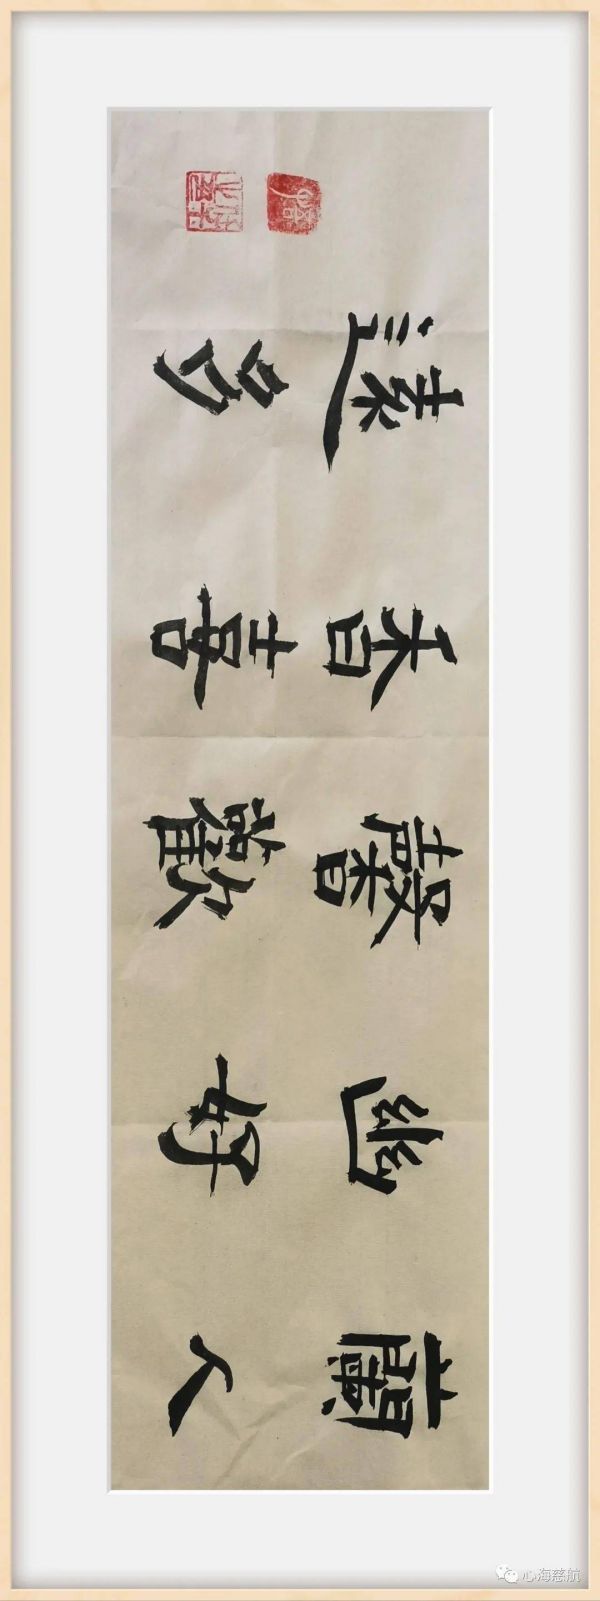 蘭幽馨香遠
人好歡喜多
心海慈航